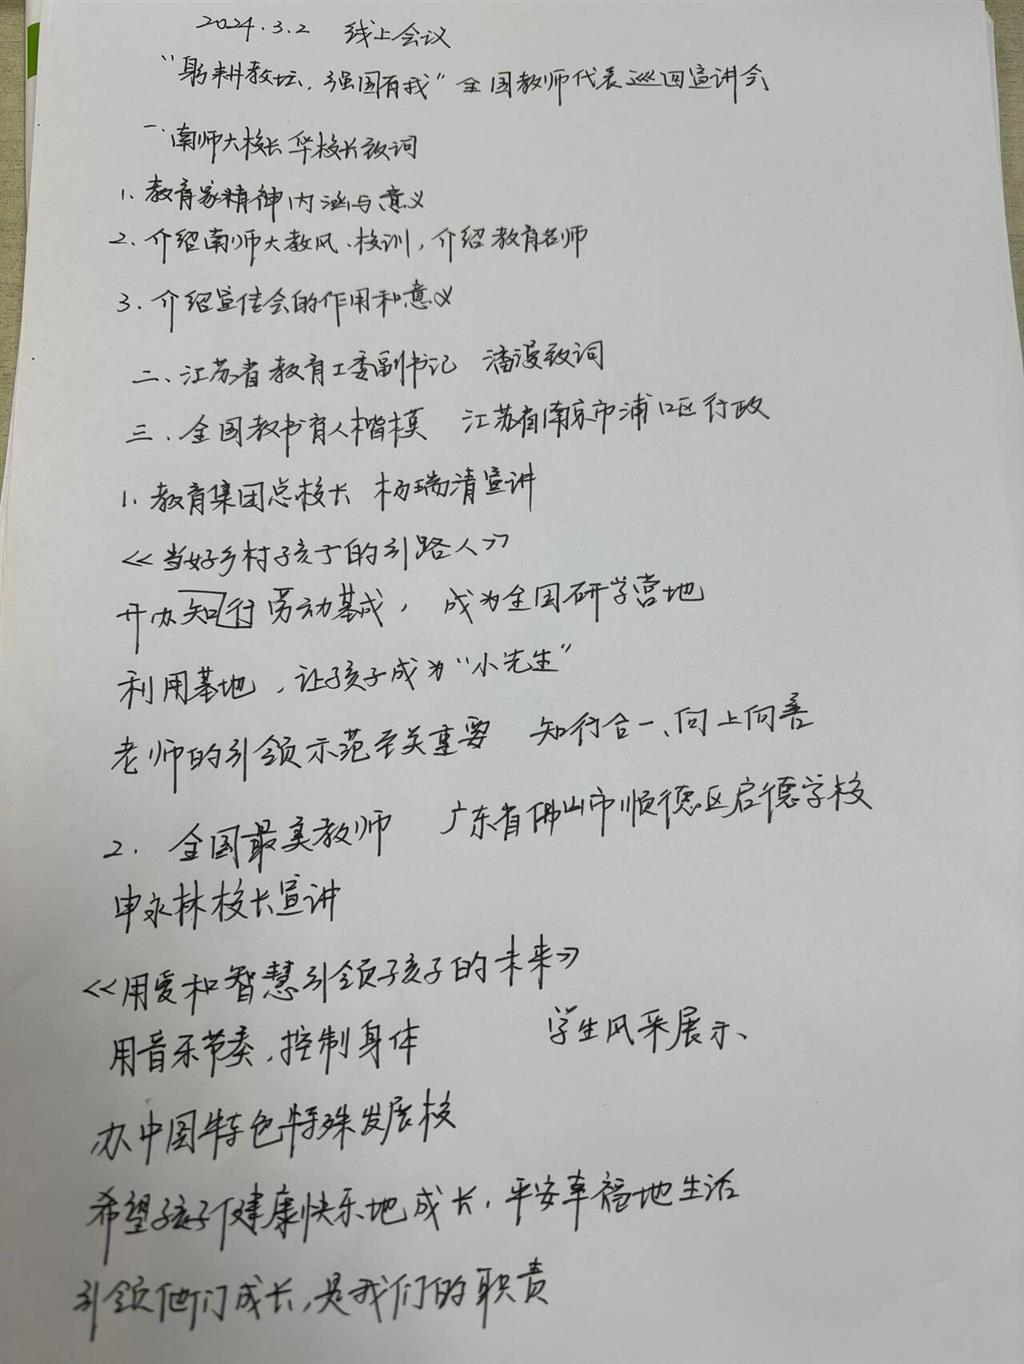 2024.3.2 线上会议
“躬耕教坛，强国有我”全国教师代表巡回宣讲会
一、南师大校长华校长致词
1. 教育家精神内涵与意义
2. 介绍南师大教风、校训，介绍教育名师
3. 介绍宣传会的作用和意义
二、江苏省教育工委副书记 潘漫致词
三、全国教书育人楷模 江苏省南京市浦口区行政
1. 教育集团总校长 杨瑞清宣讲
《当好乡村孩子的引路人》
开办知行劳动基成，成为全国研学营地
利用基地，让孩子成为“小先生”
老师的引领示范至关重要 知行合一、向上向善
2. 全国最美教师 广东省佛山市顺德区启德学校
申承林校长宣讲
《用爱和智慧引领孩子的未来》
用音乐节奏，控制身体 学生风采展示、
办中国特色特殊发展校
希望孩子健康快乐地成长，平安幸福地生活
引领他们成长，是我们的职责